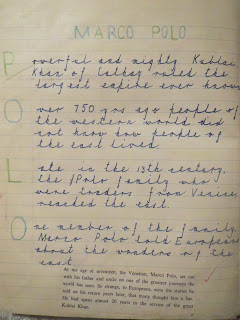 MARCO POLO
Powerful and mighty Kublai
Khan of Cathay ruled the
largest empire ever known
Over 750 yrs ago people of
the western world did
not know how people of
the east lived.
Late in the 13th century,
the Polo family who
were traders from Venice,
reached the east.
One member of the family,
Marco Polo told Europeans
about the wonders of the
east.
At the age of seventeen, the Venetian, Marco Polo, set out
with his father and uncle on one of the greatest journeys the
world has seen. So strange, to Europeans, were the stories he
told on his return years later, that many thought him a liar.
He had spent almost 20 years in the service of the great
Kublai Khan.